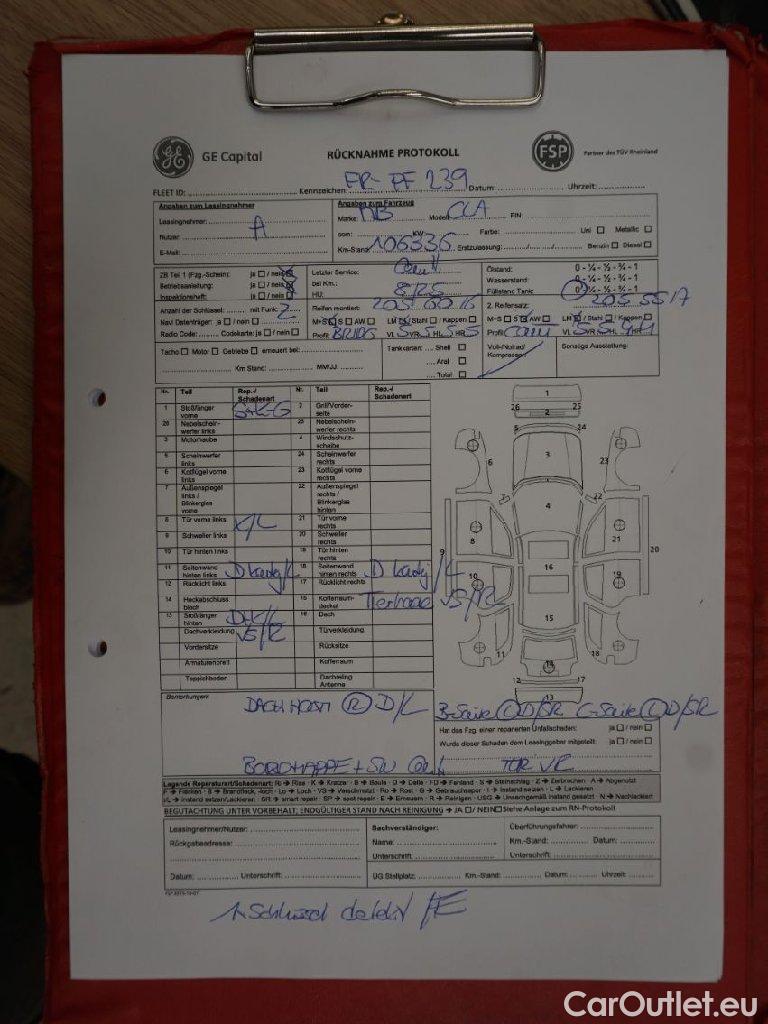 GE Capital RÜCKNAHME PROTOKOLL FSP Partner des TÜV Rheinland
FLEET ID: Kennzeichen: FR- PF 239 Datum: Uhrzeit:
Angaben zum Leasingnehmer
Leasingnehmer:
Nutzer: A
E-Mail:
Angaben zum Fahrzeug
Marke: MB Modell: CLA FIN:
ccm: KW Farbe: Uni Metallic
Km-Stand: 106335 Erstzulassung: Benzin Diesel
ZB Teil 1 (Fzg.-Schein): ja / nein
Betriebsanleitung: ja / nein
Inspektionsheft: ja / nein
Letzter Service:
bei Km.:
HU: 8/25
Ölstand: 0 - ¼ - ½ - ¾ - 1
Wasserstand: 0 - ¼ - ½ - ¾ - 1
Füllstand Tank 0 - ¼ - ½ - ¾ - 1
Anzahl der Schlüssel: mit Funk: 2
Navi Datenträger: ja / nein
Radio Code: Codekarte: ja / nein
Reifen montiert: 205 60 16
M+S S AW LM / Stahl / Kappen
Profil VL 5 VR 5 HL 5 HR 5
2. Reifensatz: 205 55 17
M+S S AW LM / Stahl / Kappen
Profil VL 5 VR 5 HL 4 HR 4
Tacho Motor Getriebe erneuert bei:
Km Stand: MM/JJ
Tankkarten: Shell
Aral
Total
Voll-/Notrad/
Kompressor
Sonstige Ausstattung:
Nr. Teil Rep.-/ Schadenart Nr. Teil Rep.-/ Schadenart
1 Stoßfänger vorne 2 Grill/Vorder- seite
26 Nebelschein- werfer links 25 Nebelschein- werfer rechts
3 Motorhaube Windschutz- scheibe
5 Scheinwerfer links 24 Scheinwerfer rechts
6 Kotflügel vorne links 23 Kotflügel vorne rechts
7 Außenspiegel links / Blinkerglas vorne 22 Außenspiegel rechts / Blinkerglas hinten
8 Tür vorne links K/L 21 Tür vorne rechts
9 Schweller links 20 Schweller rechts
10 Tür hinten links 19 Tür hinten rechts
11 Seitenwand hinten links 18 Seitenwand hinten rechts
12 Rücklicht links 17 Rücklicht rechts
14 Heckabschluss- blech 15 Kofferraum- deckel VS/R
13 Stoßfänger hinten 16 Dach
Dachverkleidung VS/R Türverkleidung
Vordersitze Rücksitze
Armaturenbrett Kofferraum
Teppichboden Dachreling Antenne
Bemerkungen:
DACH R D/L
BORDMAPPE + SH
B-Säule D/SR C-Säule L D/SR
Hat das Fzg einen reparierten Unfallschaden: ja / nein
Wurde dieser Schaden dem Leasinggeber mitgeteilt: ja / nein
TÜR VR
Legende Reparaturart/Schadenart: Ri → Riss - K → Kratzer - B → Beule - D → Delle - FD → Fehlend - S → Steinschlag - Z → Zerbrochen - A → Abgenutzt
F → Flecken - B → Brandfleck, -loch - Lo → Loch - VS → Verschmutzt - Ro → Rost - G → Gebrauchsspur - I → Instand setzen - L → Lackieren
I/L → Instand setzen/Lackieren - SR → smart repair - SP → spot repair - E → Erneuern - R → Reinigen - USG → Unsachgemäß instand gesetzt - N → Nachlackiert
BEGUTACHTUNG UNTER VORBEHALT; ENDGÜLTIGER STAND NACH REINIGUNG → JA / NEIN Siehe Anlage zum RN-Protokoll
Leasingnehmer/Nutzer:
Rückgabeadresse:
Datum: Unterschrift:
Sachverständiger:
Name:
Unterschrift:
Überführungsfahrer:
Km.-Stand: Datum:
Unterschrift:
ÜG Stellplatz: Km.-Stand: Datum: Uhrzeit:
1x Schlüssel defekt
CarOutlet.eu